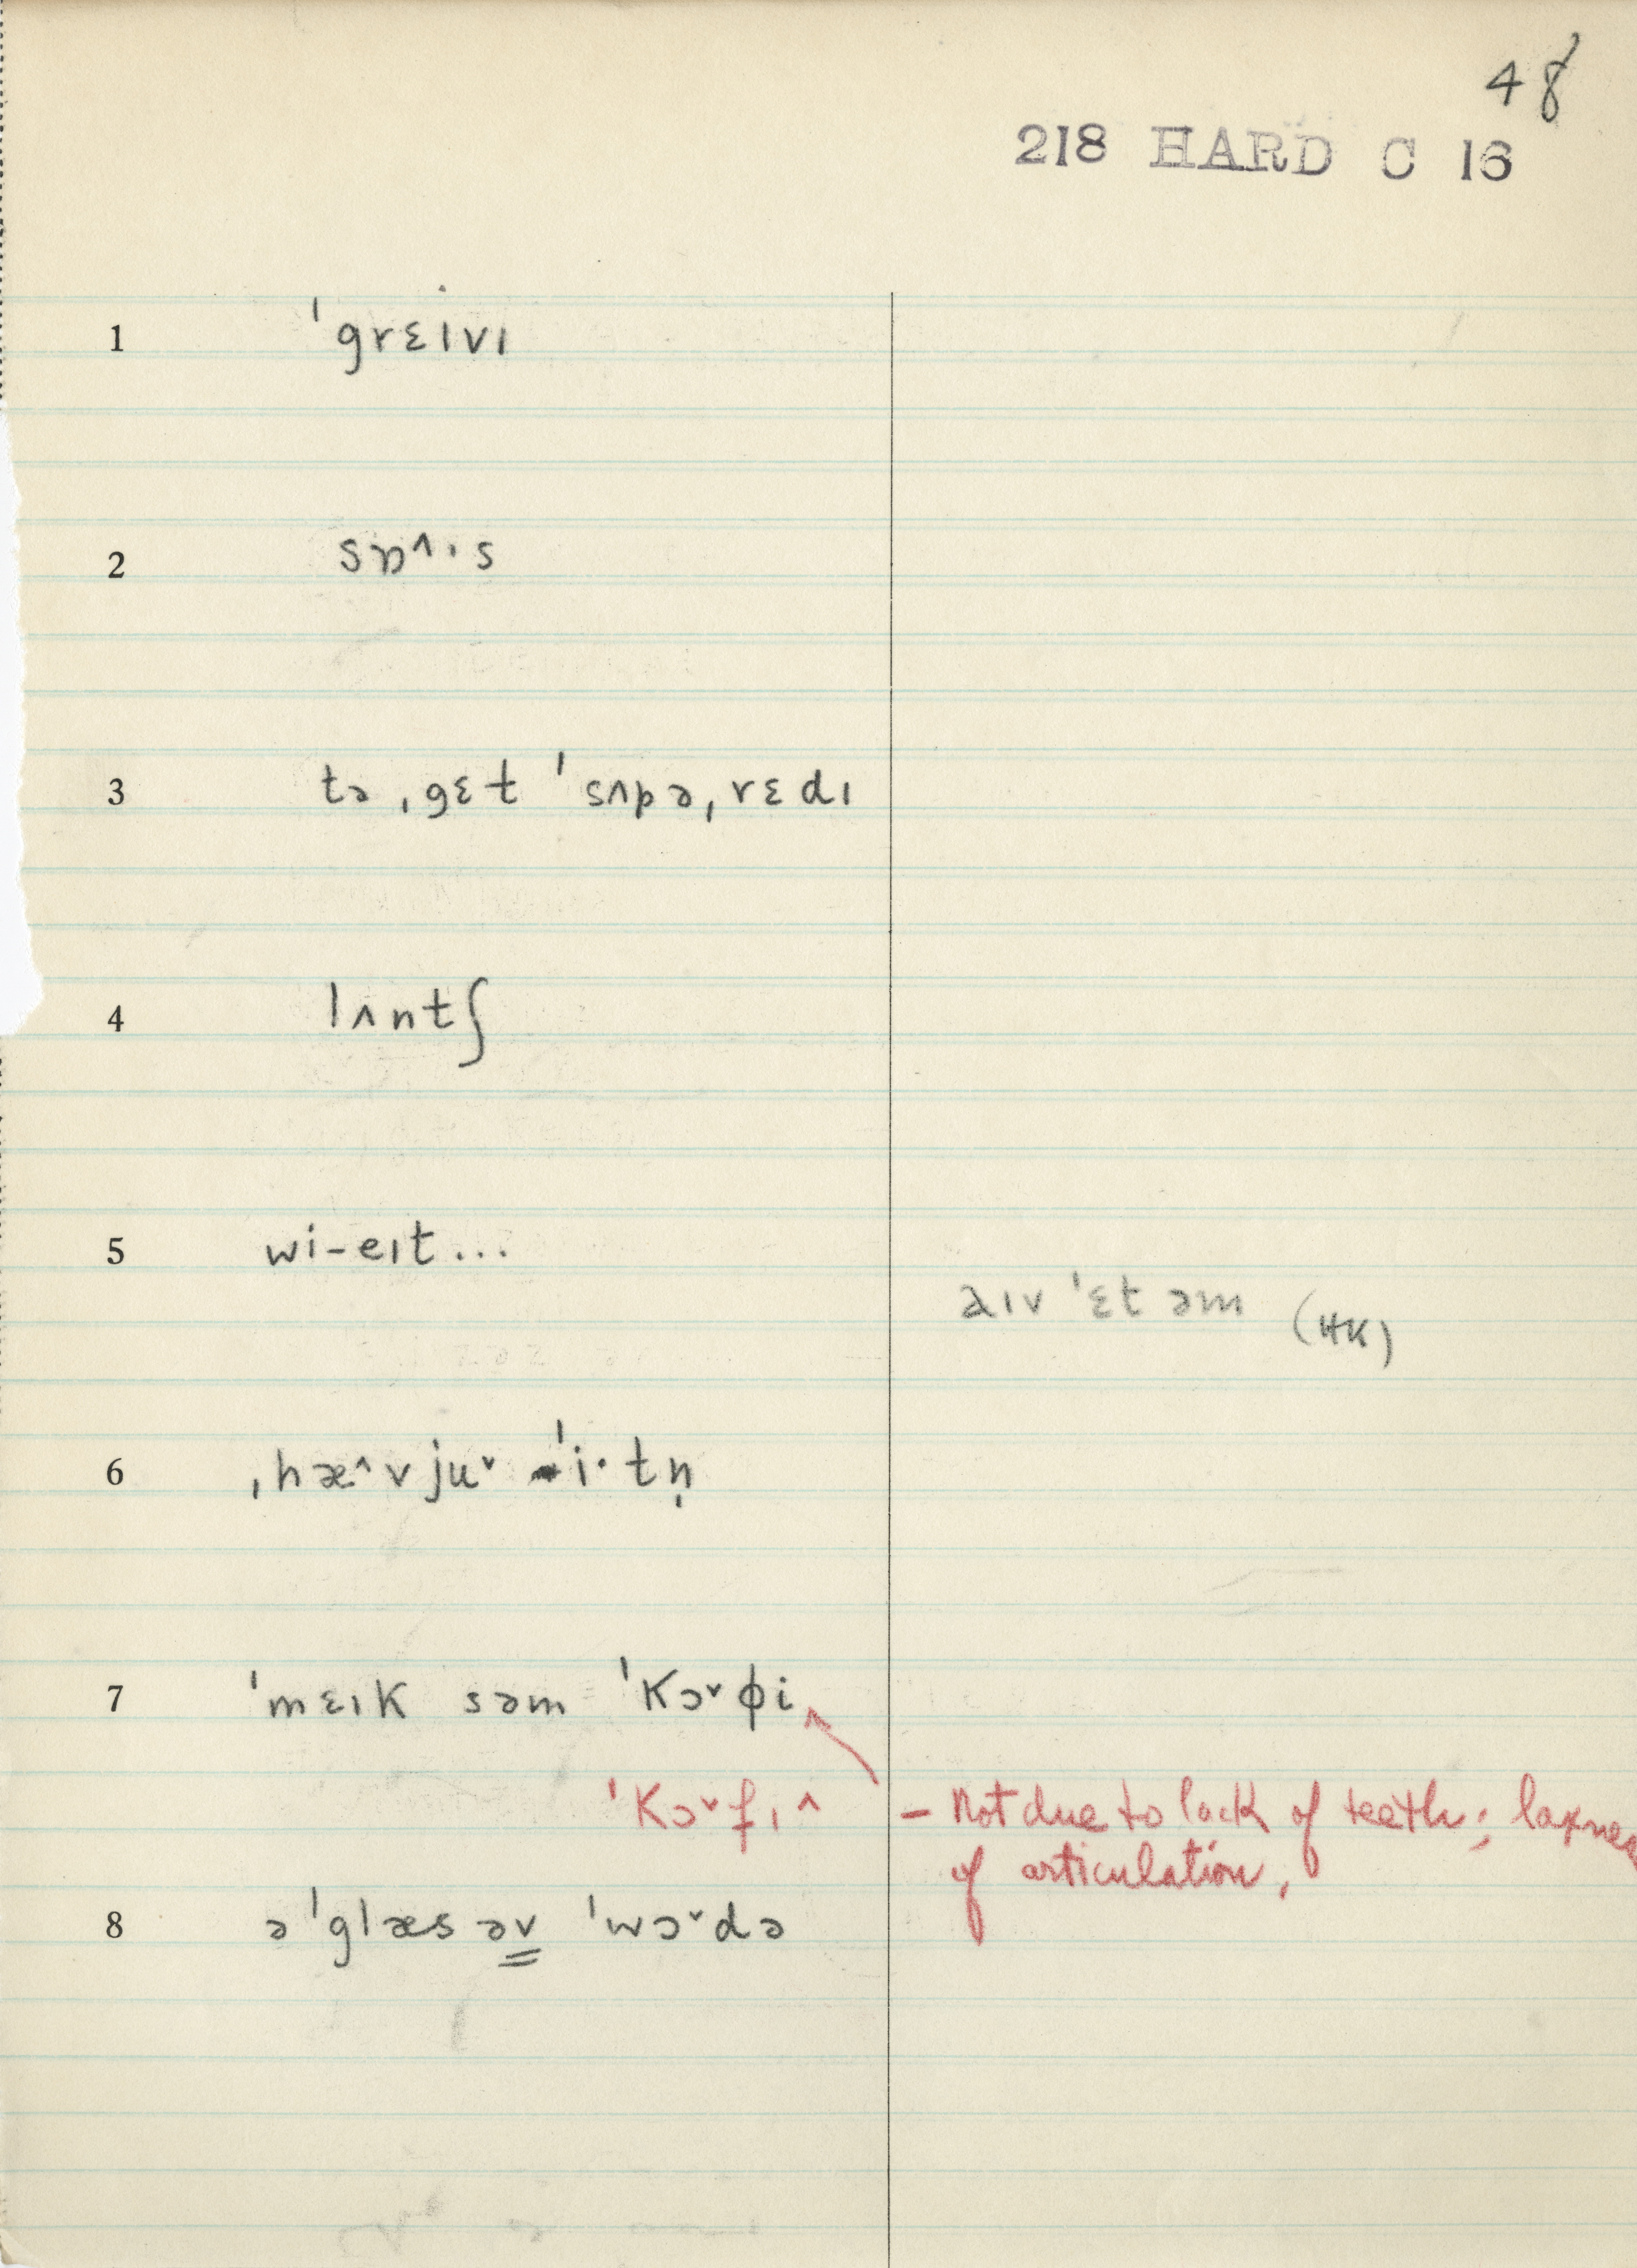 48
218 HARD C 16
1 ˈgrɛɪvɪ
2 sɒ^·s
3 tə ˌgɛt ˈsʌpəˌrɛdɪ
4 lʌntʃ
5 wi-eɪt...
aɪv ˈɛt əm (HK)
6 ˌhæ^vjuˇ ˈi·tn̩
7 ˈmɛɪk səm ˈkɔˇɸi
ˈkɔˇfɪ^ – Not due to lack of teeth; laxness
of articulation.
8 ə ˈglæs əv ˈwɔˇdə